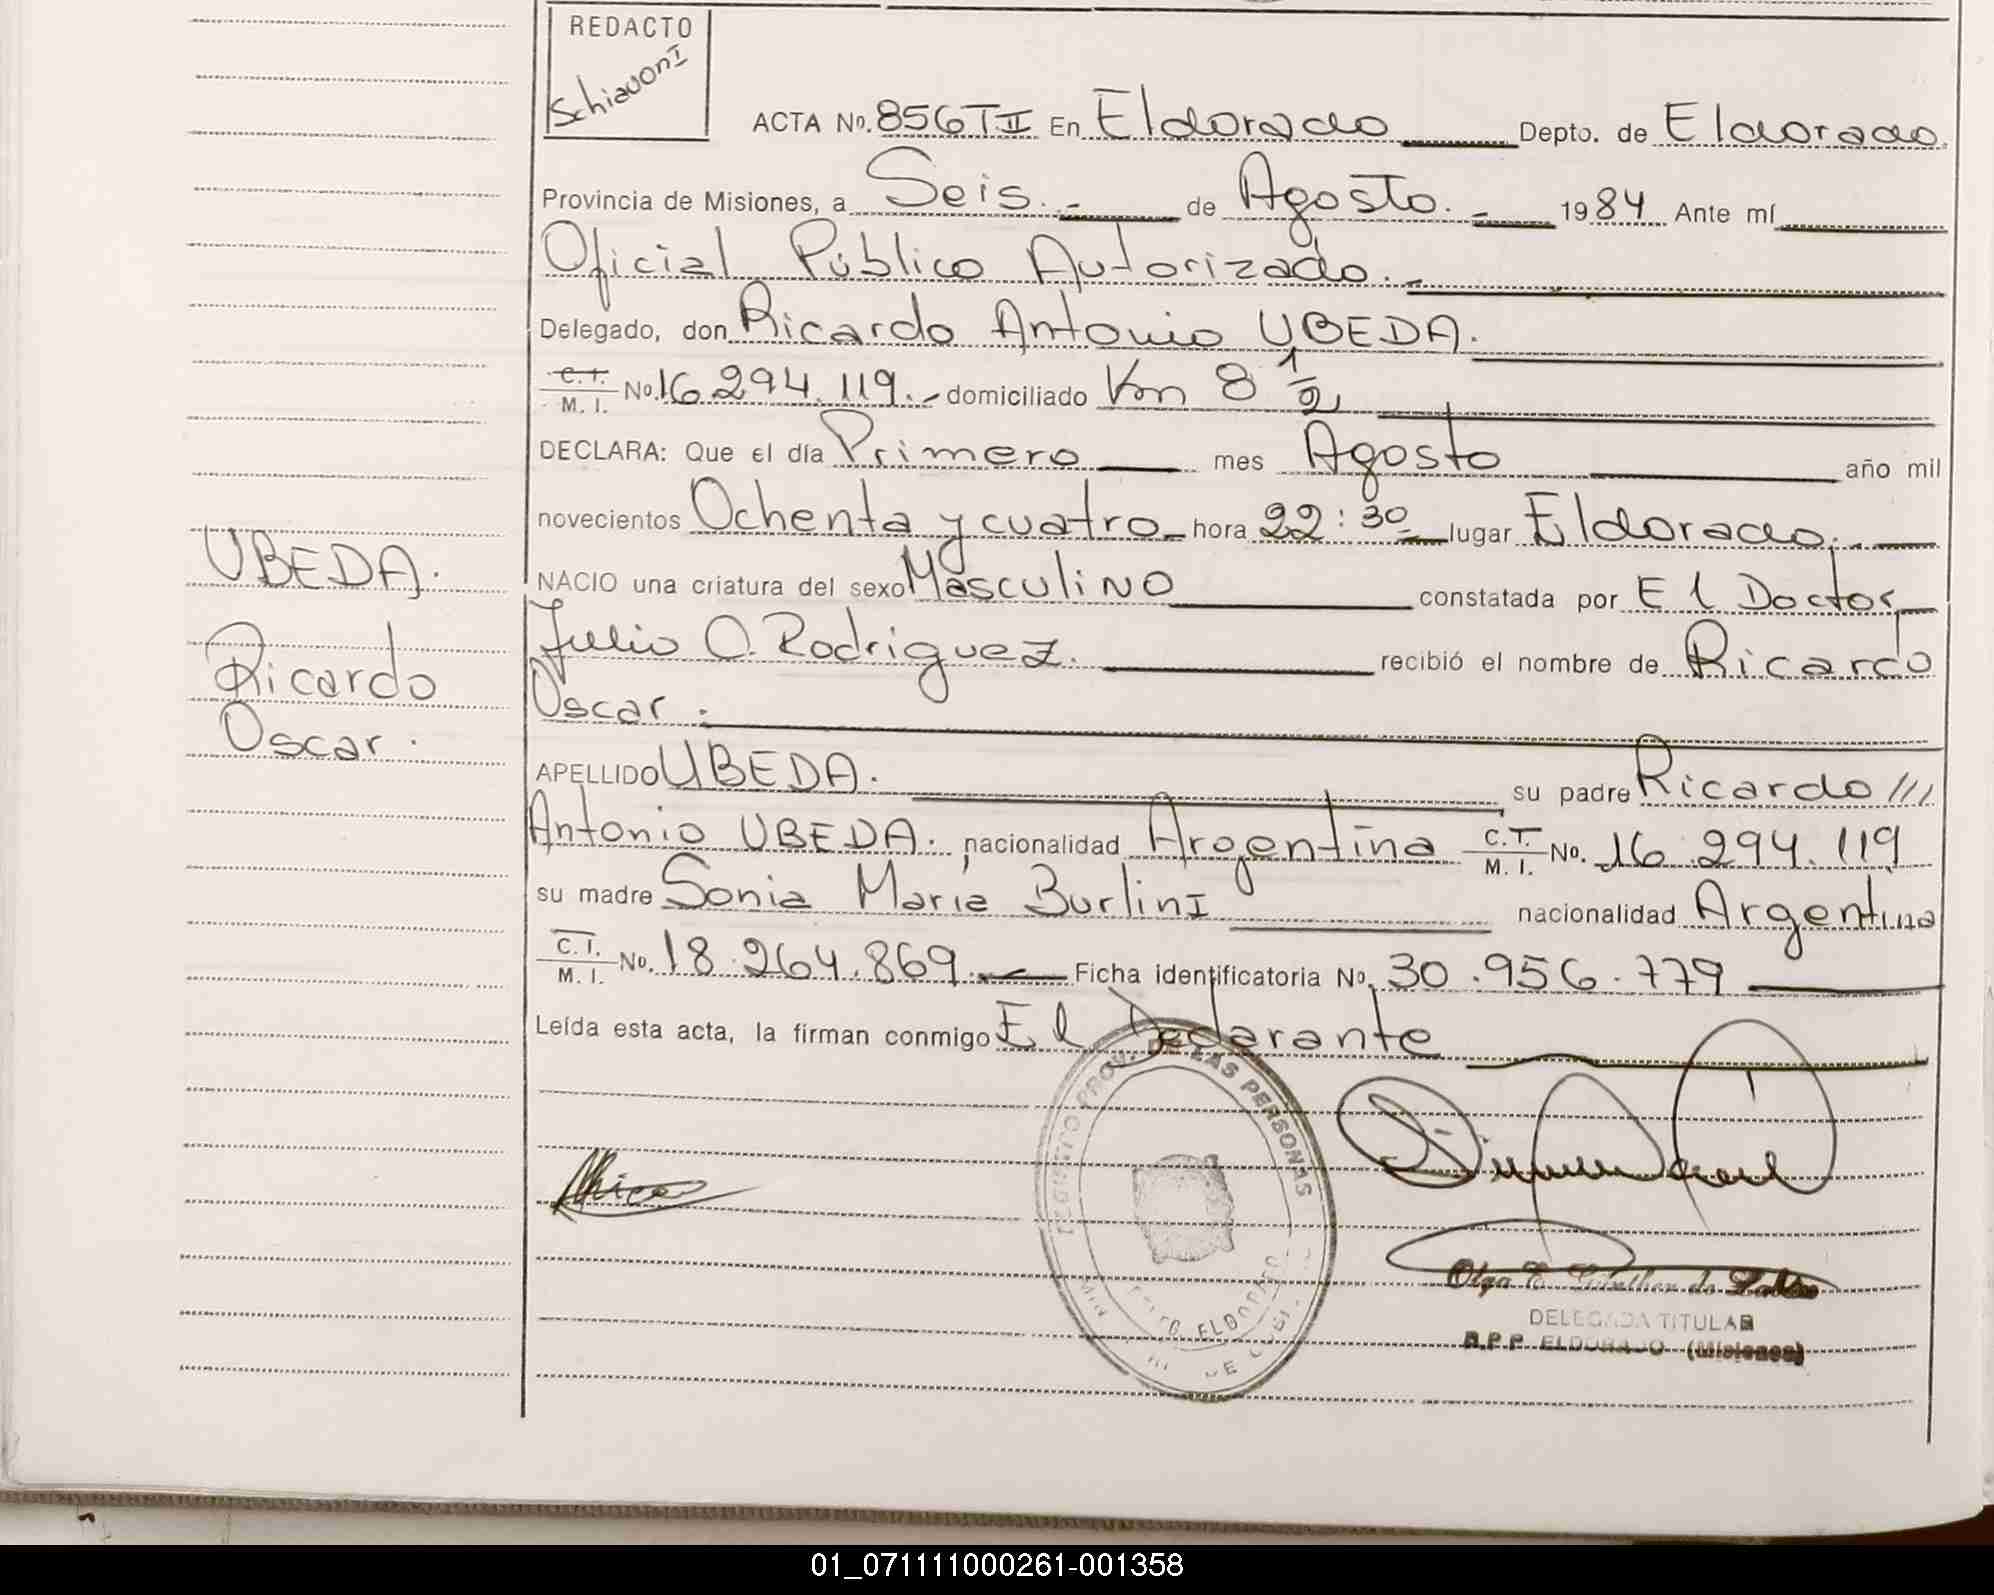 REDACTO
Schiavoni
ACTA No. 856 T II En Eldorado Depto. de Eldorado.
Provincia de Misiones, a Seis.- de Agosto.- 1984 Ante mí
Oficial Público Autorizado.-
Delegado, don Ricardo Antonio UBEDA.
C.I. M. I. No. 16.294.119.- domiciliado Km 8 1/2
DECLARA: Que el día Primero mes Agosto año mil
novecientos Ochenta y cuatro hora 22:30 lugar Eldorado.-
NACIO una criatura del sexo Masculino constatada por El Doctor
Julio O. Rodriguez. recibió el nombre de Ricardo
Oscar.
APELLIDO UBEDA. su padre Ricardo ///
Antonio UBEDA. nacionalidad Argentina C.T. M. I. No. 16.294.119
su madre Sonia María Burlini nacionalidad Argentina
C.I. M. I. No. 18.264.869.- Ficha identificatoria No. 30.956.779
Leída esta acta, la firman conmigo El Declarante
UBEDA.
Ricardo
Oscar.
PROV. DE LAS PERSONAS
ELDORADO
Olga E. Günther de
DELEGADA TITULAR
R.P.P. ELDORADO (Misiones)
01_071111000261-001358